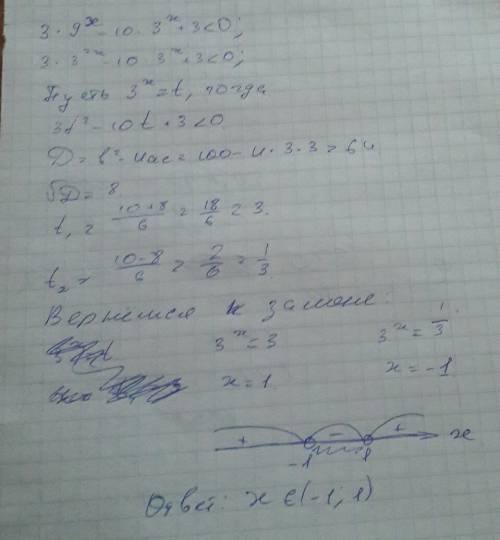 3 · 9^x - 10 · 3^x + 3 < 0;
3 · 3^2x - 10 · 3^x + 3 < 0;
Пусть 3^x = t, тогда
3t² - 10t + 3 < 0
D = b² - 4ac = 100 - 4 · 3 · 3 = 64
√D = 8
t₁ = (10+8)/6 = 18/6 = 3.
t₂ = (10-8)/6 = 2/6 = 1/3
Вернемся к замене:
3^x = 3 3^x = 1/3
x = 1 x = -1
+ - + x
-1 1
Ответ: x ∈ (-1; 1)